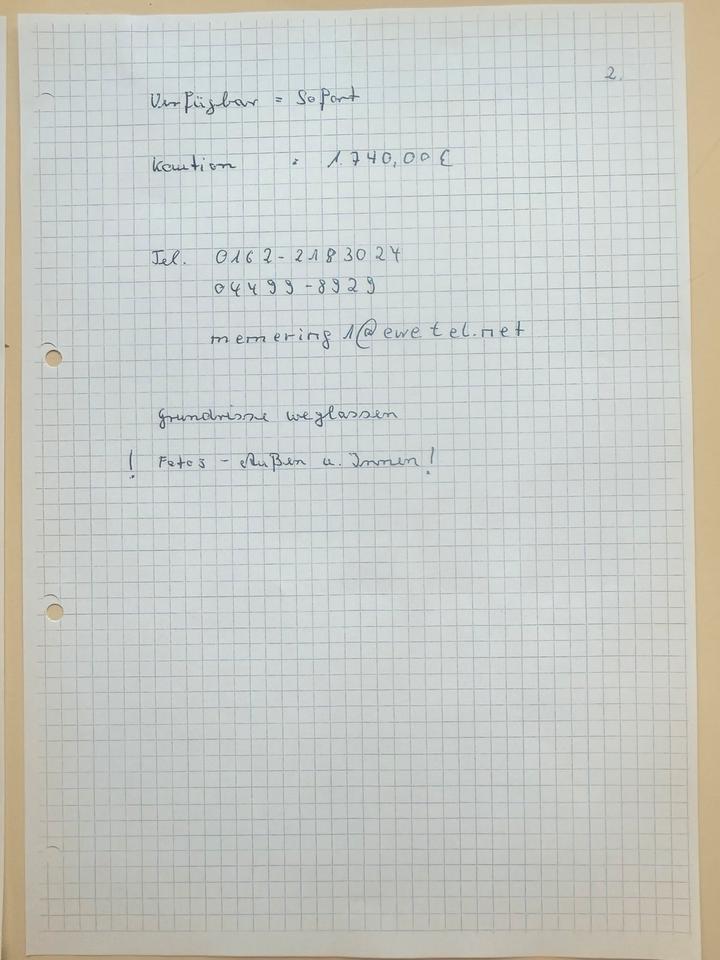 2.
Verfügbar = Sofort
Kaution : 1.740,00 €
Tel. 0162-2183024
04499-8929
memering1@ewetel.net
Grundrisse weglassen
! Fotos - Außen u. Innen!